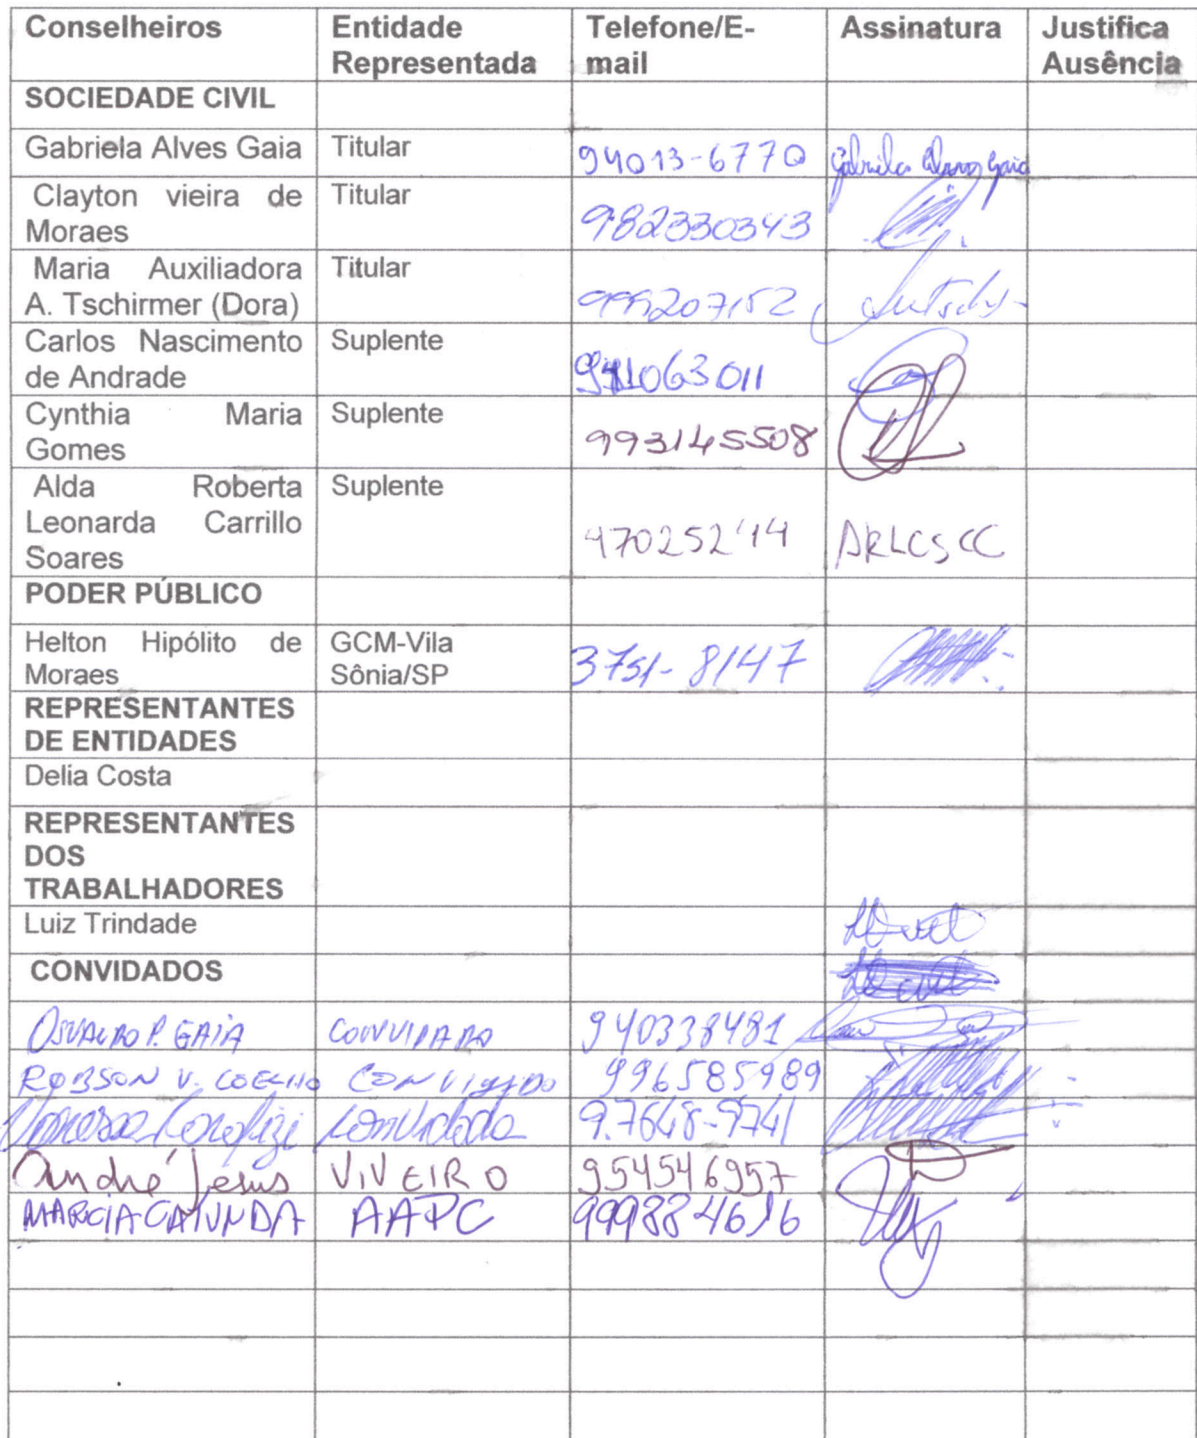 Conselheiros Entidade Representada Telefone/E-mail Assinatura Justifica Ausência
SOCIEDADE CIVIL
Gabriela Alves Gaia Titular 94013-6770 Gabriela Alves Gaia
Clayton vieira de Moraes Titular 982330343
Maria Auxiliadora A. Tschirmer (Dora) Titular 999207152
Carlos Nascimento de Andrade Suplente 941063011
Cynthia Maria Gomes Suplente 993145508
Alda Roberta Leonarda Carrillo Soares Suplente 47025214 ARLCSCC
PODER PÚBLICO
Helton Hipólito de Moraes GCM-Vila Sônia/SP 3751-8147
REPRESENTANTES DE ENTIDADES
Delia Costa
REPRESENTANTES DOS TRABALHADORES
Luiz Trindade
CONVIDADOS
OSVALDO P. GAIA CONVIDADO 940338481
ROBSON V. COELHO CONVIDADO 996585989
Convidada 9.7648-9741
André Jesus VIVEIRO 954546957
MARCIA CATUNDA AAPC 999884616